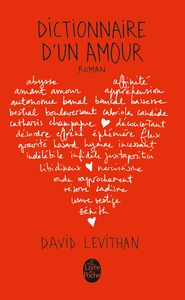 DICTIONNAIRE
D'UN AMOUR
ROMAN
abysse affinité
amant amour appréhension
autonome banal bancal baverse
bestial bouleversant cabriole candide
catharsis champagne déconcertant
désordre effréné éphémère flux
gravité hasard hymne incessant
indélébile infidèle juxtaposition
libidineux narcissisme
onde rapprochement
réserve sadisme
vertige
zénith
DAVID LEVITHAN
Le Livre
de Poche